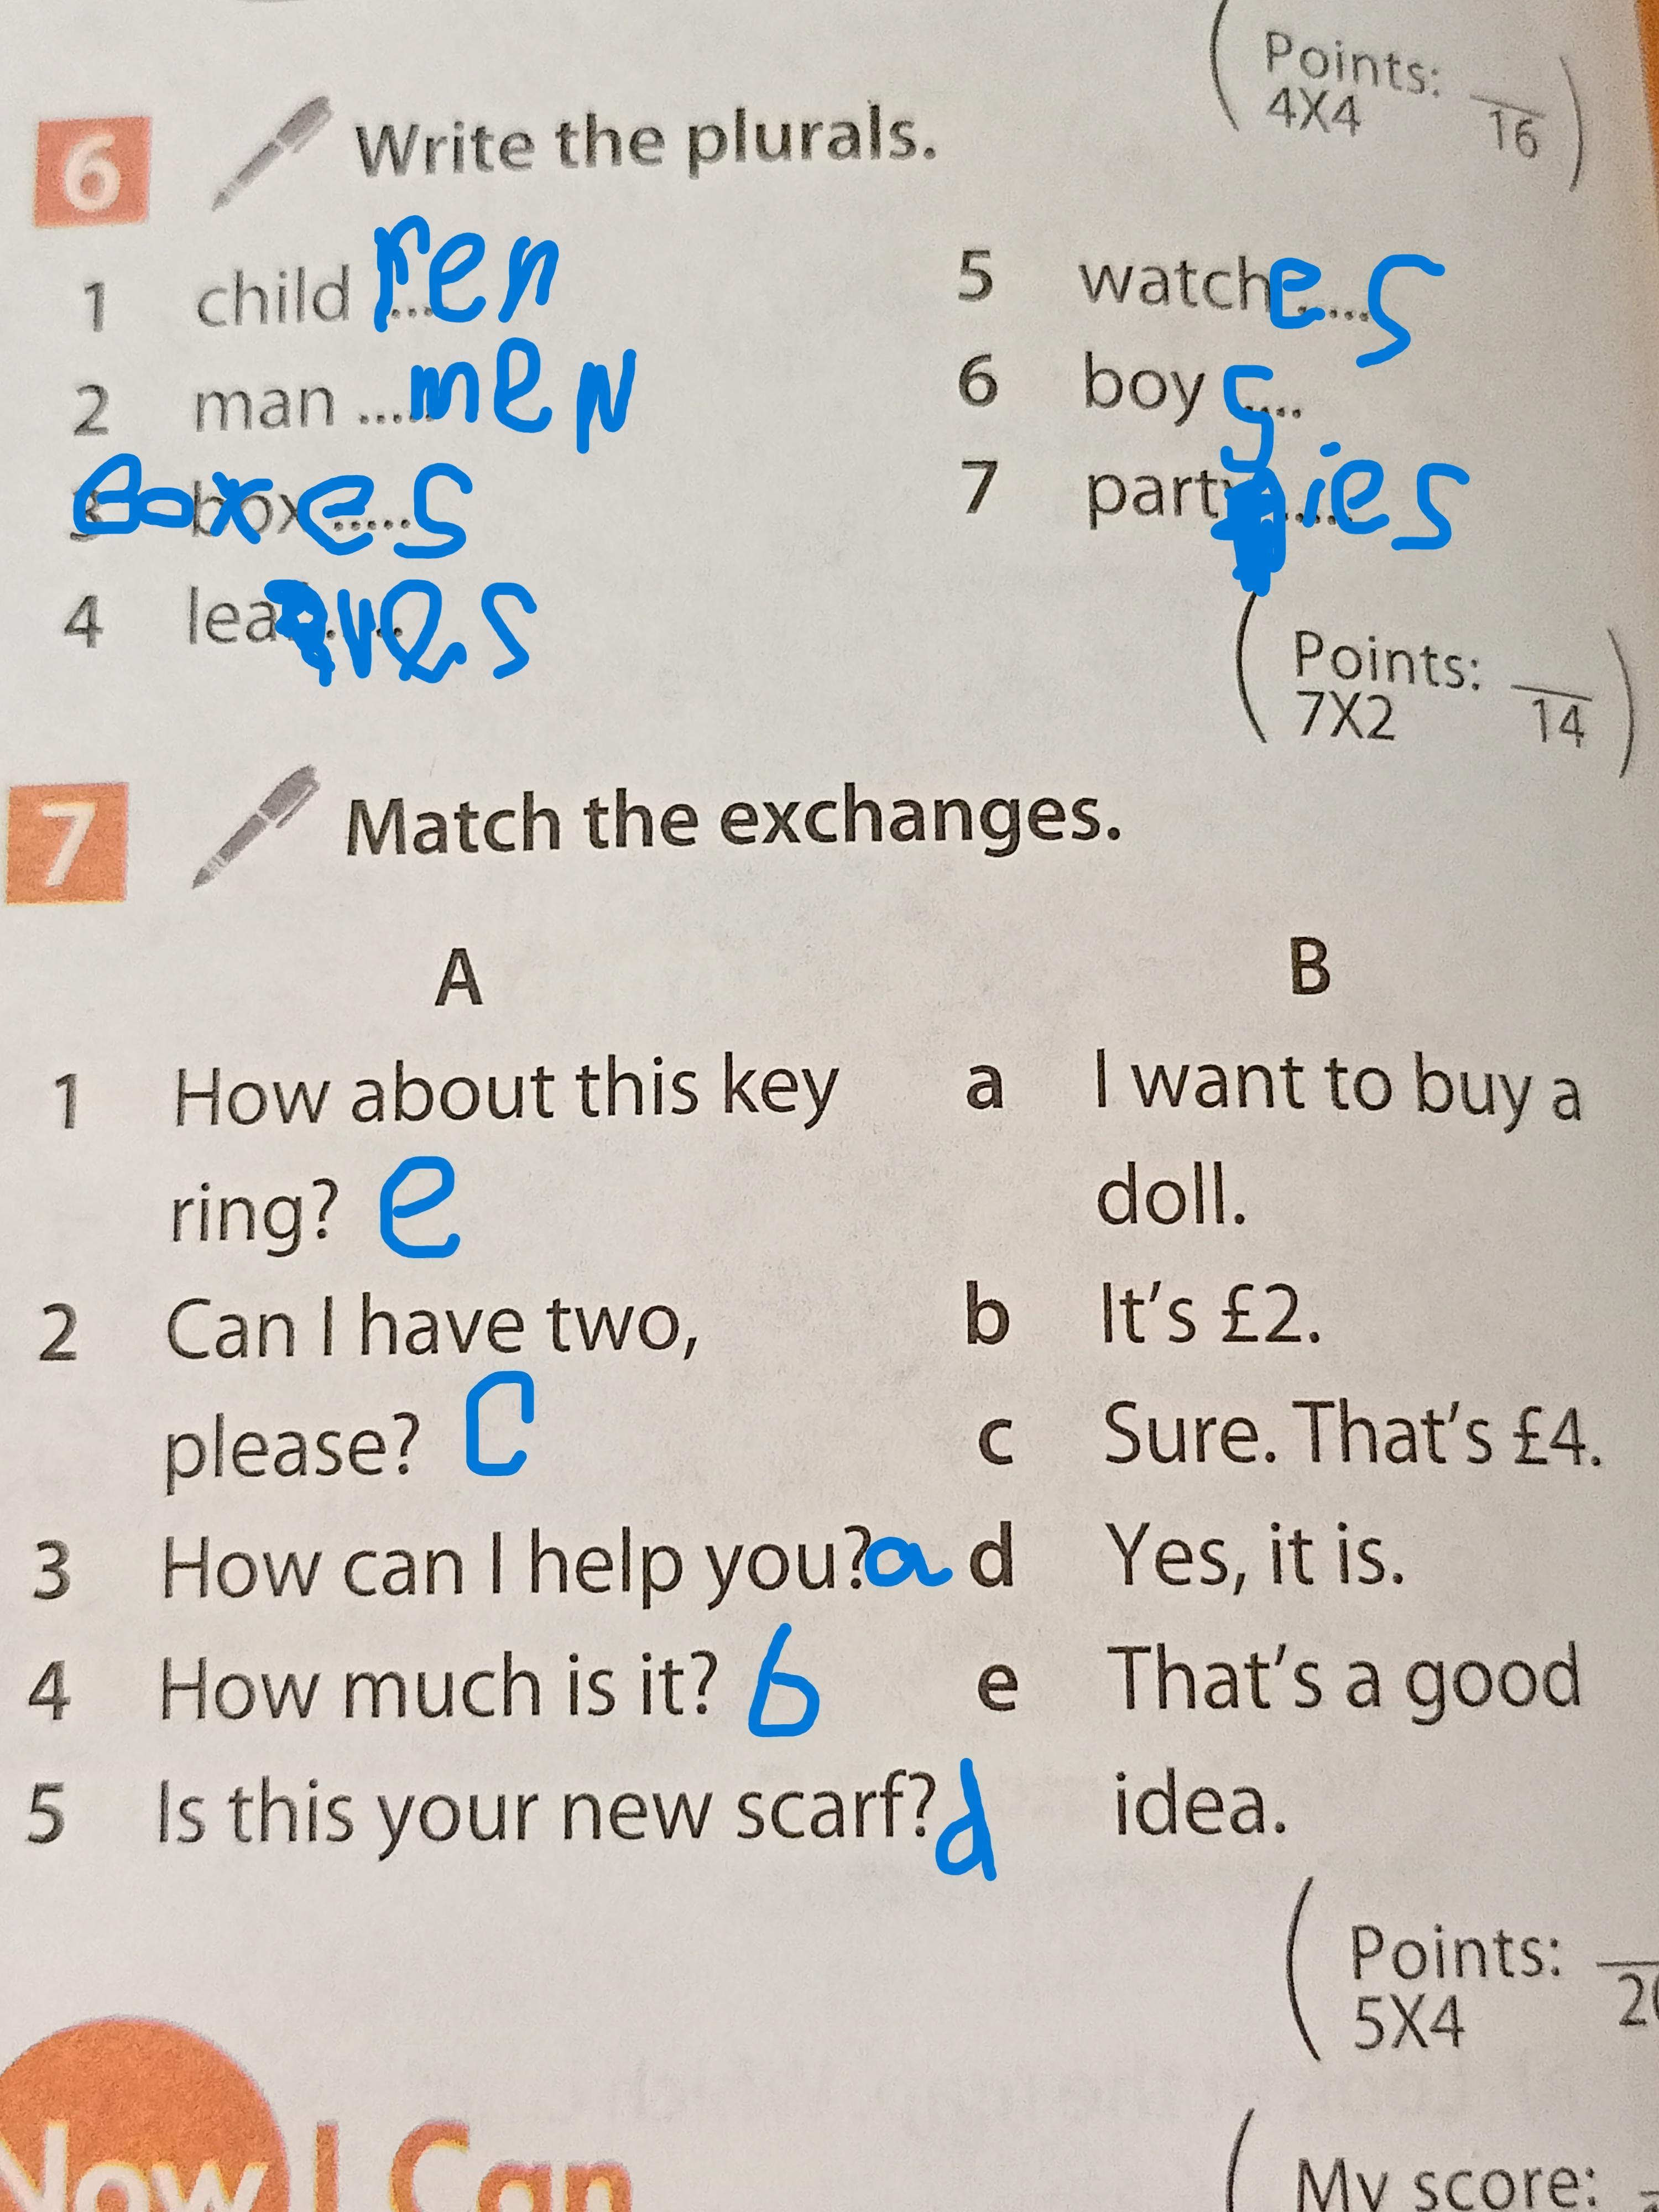 (Points: 4X4 16)
6 Write the plurals.
1 child ...ren
2 man ..... men
3 box ..... Boxes
4 lea.....ves
5 watch.....es
6 boy s....
7 party.....ies
(Points: 7X2 14)
7 Match the exchanges.
A B
1 How about this key
ring? e
2 Can I have two,
please? C
3 How can I help you? a
4 How much is it? b
5 Is this your new scarf? d
a I want to buy a
doll.
b It's £2.
c Sure. That's £4.
d Yes, it is.
e That's a good
idea.
(Points:
5X4
Now I Can
(My score: